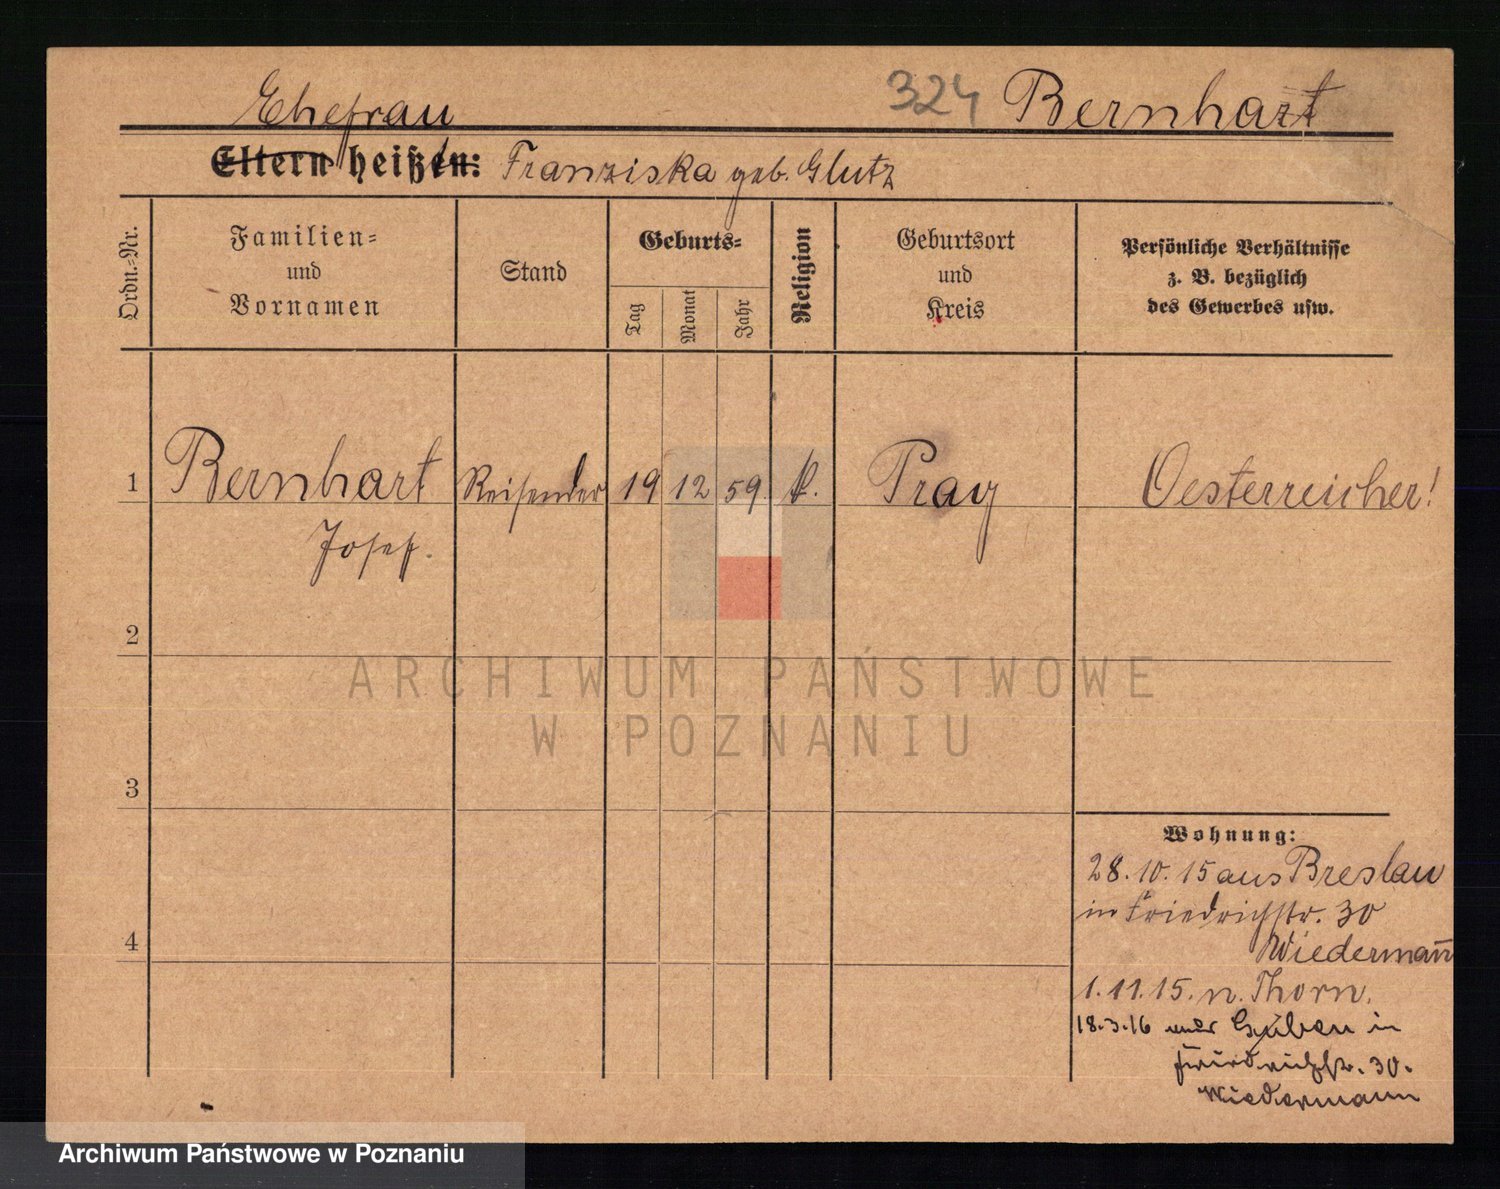 324 Bernhart
Ehefrau
Eltern heißen: Franziska geb. Glutz
Ordn.-Nr.
Familien-
und
Vornamen
Stand
Geburts-
Tag
Monat
Jahr
Religion
Geburtsort
und
Kreis
Persönliche Verhältnisse
z. B. bezüglich
des Gewerbes usw.
1 Bernhart Reisender 19 12 59 k. Prag Oesterreicher!
Josef.
2
ARCHIWUM PAŃSTWOWE
W POZNANIU
3
Wohnung:
28.10.15 aus Breslau
in Friedrichstr. 30
Wiedermann
4
1.11.15. n. Thorn.
18.3.16 aus Guben in
Friedrichstr. 30.
Wiedermann
Archiwum Państwowe w Poznaniu